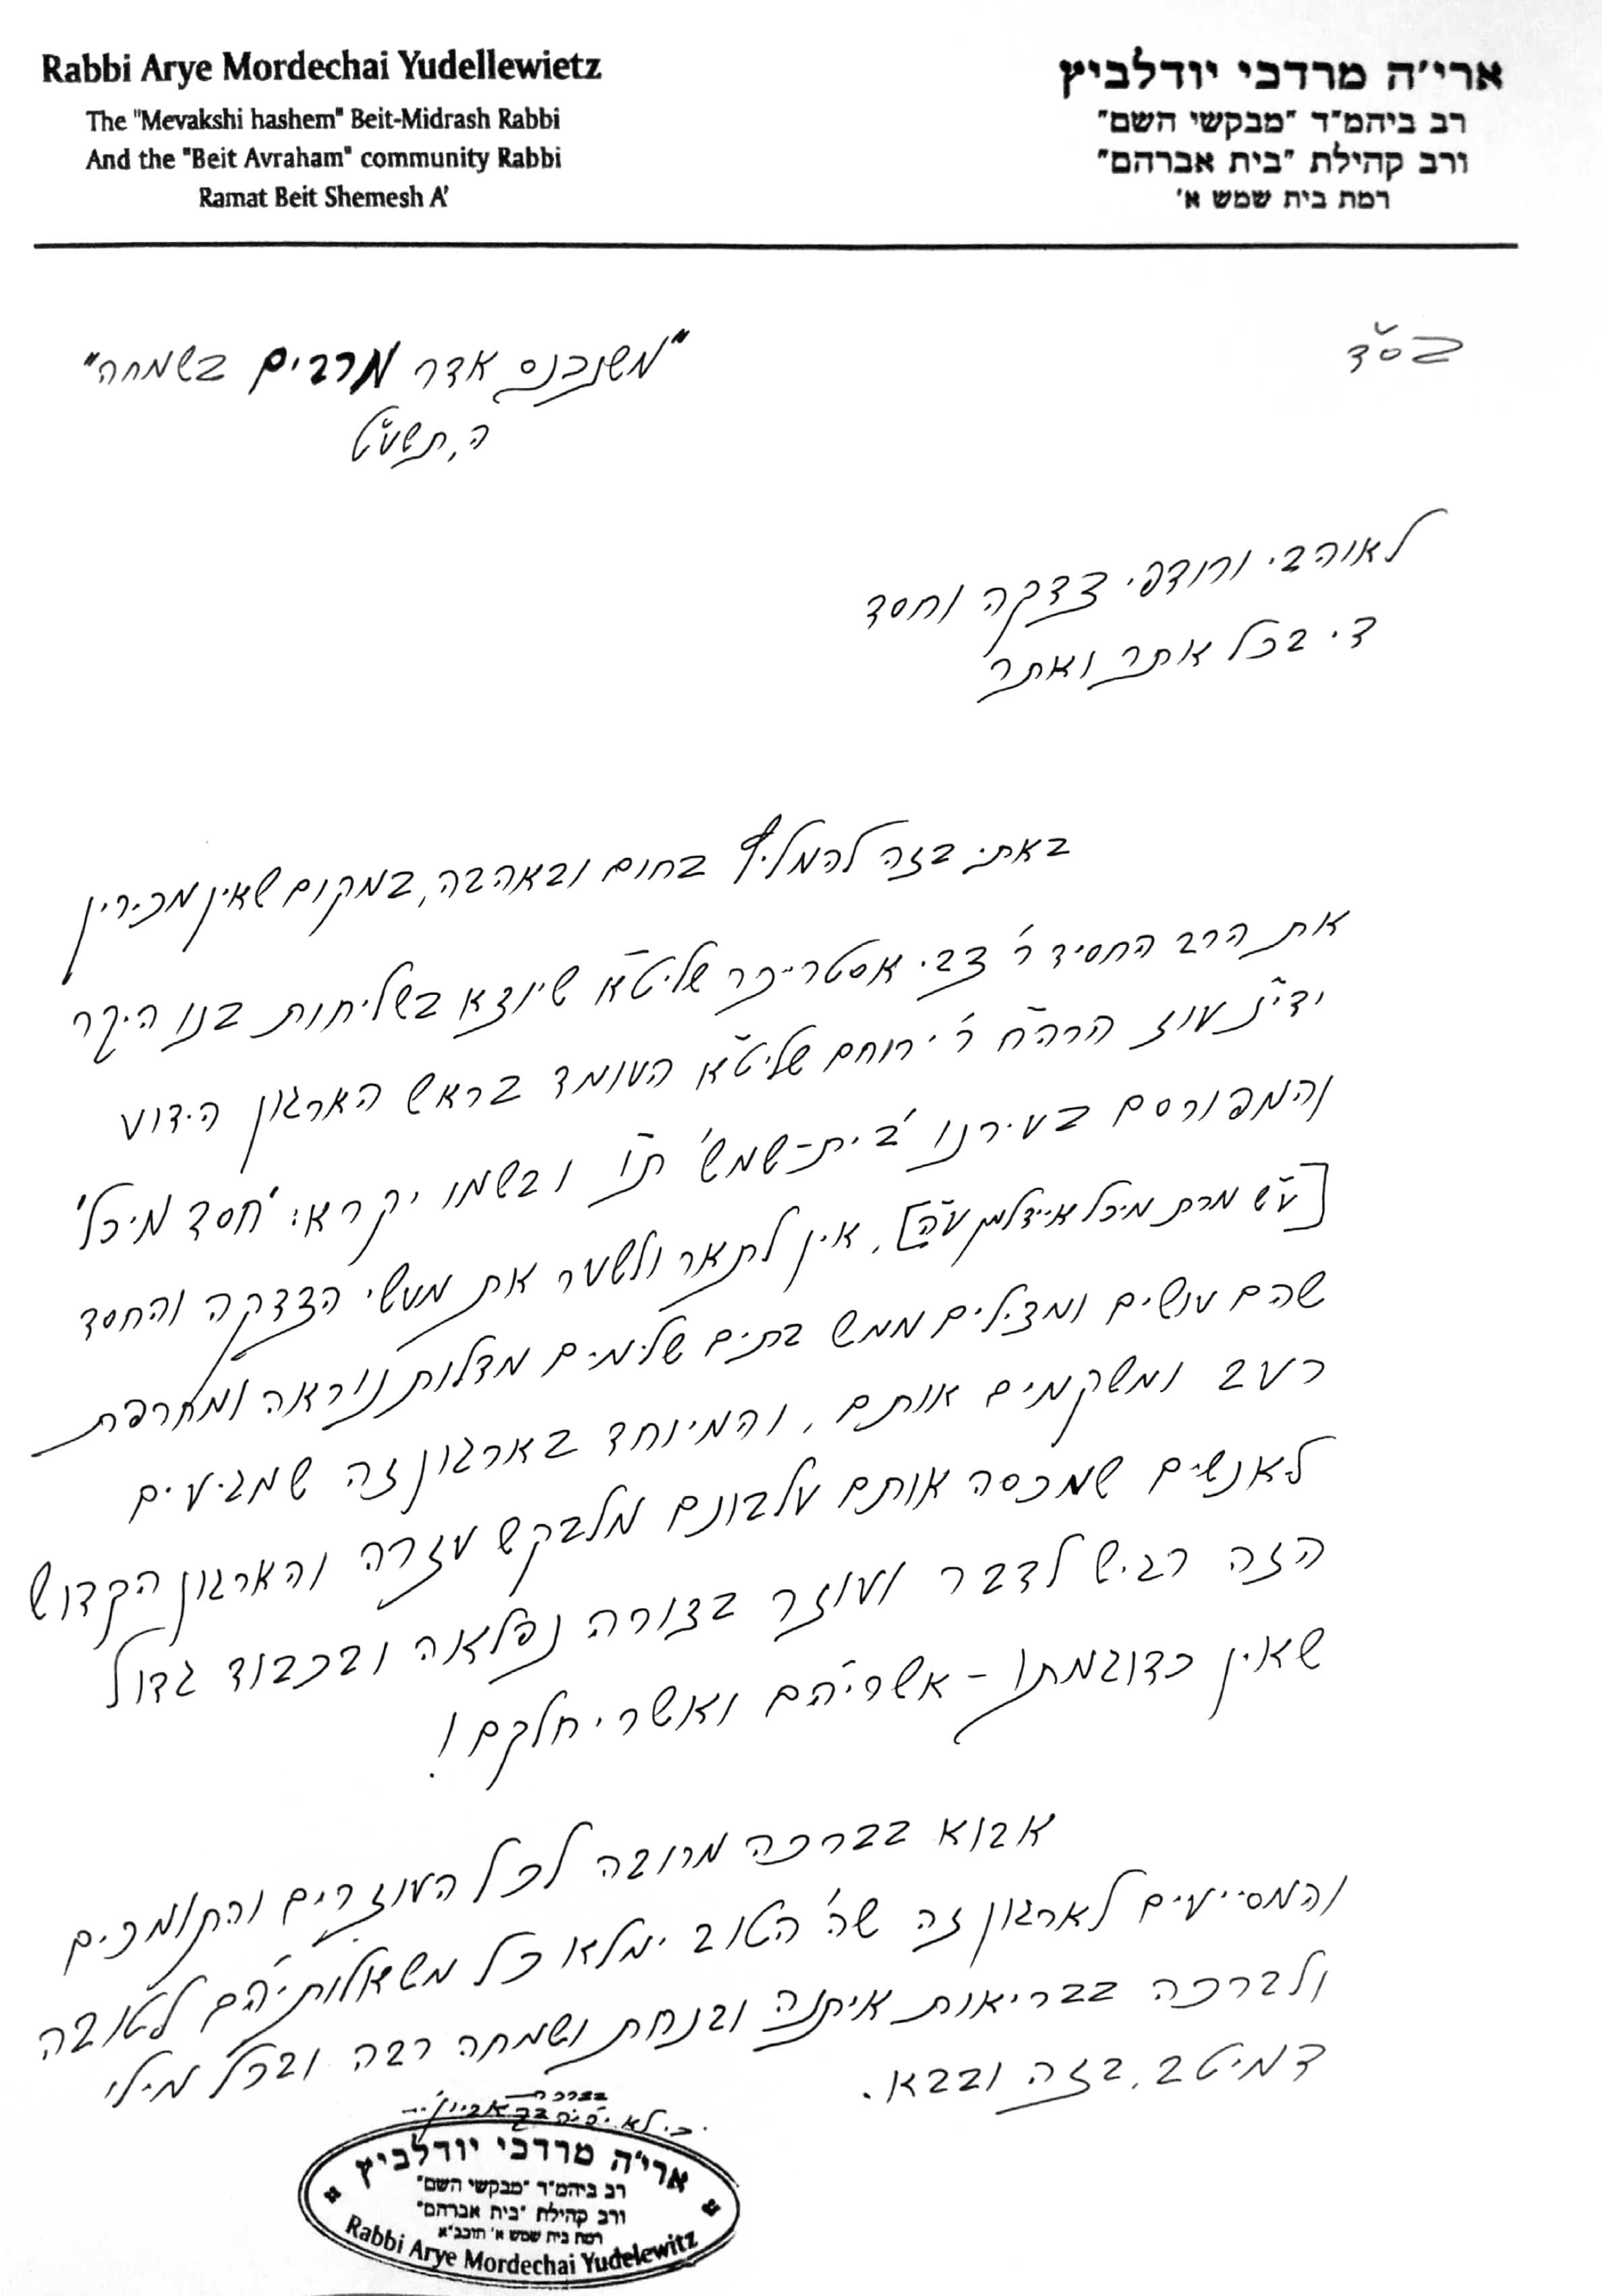 Rabbi Arye Mordechai Yudellewietz
The "Mevakshi hashem" Beit-Midrash Rabbi
And the "Beit Avraham" community Rabbi
Ramat Beit Shemesh A'
ארי"ה מרדכי יודלביץ
רב ביהמ"ד "מבקשי השם"
ורב קהילת "בית אברהם"
רמת בית שמש א'
בס"ד
"משנכנס אדר מרבים בשמחה"
ה,תשע"ט
לאוהבי ורודפי צדקה וחסד
די בכל אתר ואתר
באתי בזה להמליץ בחום ובאהבה, במקום שאין מכירין
את הרב החסיד ר' צבי אסטרייכר שליט"א שיוצא בשליחות בנו היקר
ידי"נ עוז הרה"ח ר' ירוחם שליט"א העומד בראש הארגון הידוע
והמפורסם בעירנו 'בית-שמש' ת"ו ובשמו יקרא: 'חסד מיכל'
[ע"ש מרת מיכל איידלמן ע"ה], אין לתאר ולשער את מעשי הצדקה והחסד
שהם עושים ומצילים ממש בתים שלימים מדלות נוראה ומחרפת
רעב ומשקמים אותם, והמיוחד בארגון זה שמגיעים
לאנשים שמכסה אותם עלבונם מלבקש עזרה והארגון הקדוש
הזה רגיש לדבר ועוזר בצורה נפלאה ובכבוד גדול
שאין כדוגמתו - אשריהם ואשרי חלקם!
אבוא בברכה מרובה לכל העוזרים והתומכים
והמסייעים לארגון זה שה' הטוב ימלא כל משאלותיהם לטובה
ולברכה בבריאות איתנה ובנחת ושמחה רבה ובכל מילי
דמיטב, בזה ובבא.
בברכה
כי לא
ארי"ה מרדכי יודלביץ
רב ביהמ"ד "מבקשי השם"
ורב קהילת "בית אברהם"
רמת בית שמש א' תובב"א
Rabbi Arye Mordechai Yudelewitz